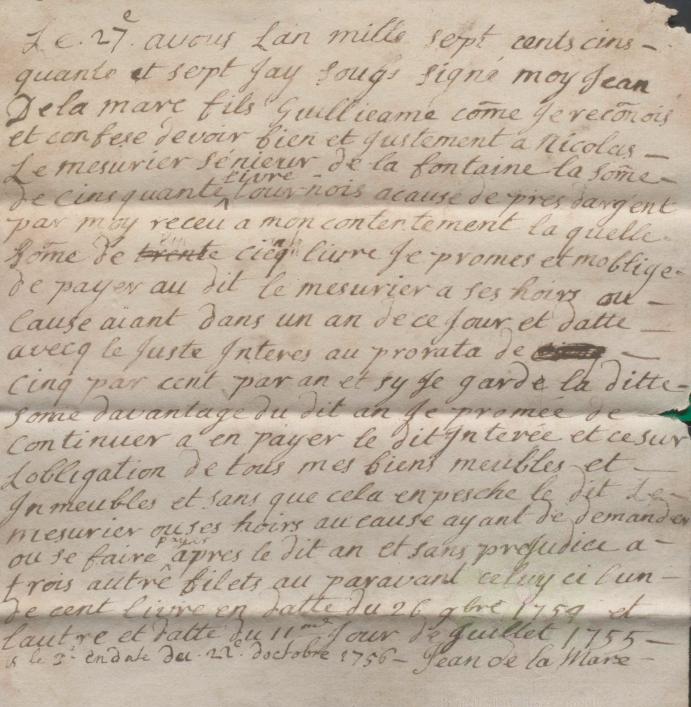 Le .27e. avous Lan mille sept cents cins-
quante et sept Jay sougs signé moy Jean
De la mare fils Guillieame com̄e Je recōnois
et confese devoir bien et Justement a Nicolas-
Le mesurier senieur de la fontaine la som̄e-
de cinsquante livre tournois acause de pres dargent
par moy receu a mon contentement la quelle
som̄e de trente livre Je promes et moblige-
de payer au dit le mesurier a ses hoirs ou-
Cause aiant dans un an de ce Jour et datte-
avecq le Juste Interes au prorata de
cinq par cent par an et sy Je garde la ditte-
some davantage du dit an Je promée de
Continuer a en payer le dit Interée et ce sur
Lobligation de tous mes biens meubles et-
Inmeubles et sans que cela enpesche le dit Le-
mesurier ou ses hoirs au cause ayant de demander
ou se faire payer apres le dit an et sans prejudice a-
trois autre filets au paravant celuy ci lun-
de cent livre en datte du 26 9bre 1759 et
lautre et datte du 11me Jour de Juillet 1755-
le 3e en date du .22e doctobre 1756- Jean de la Mare-